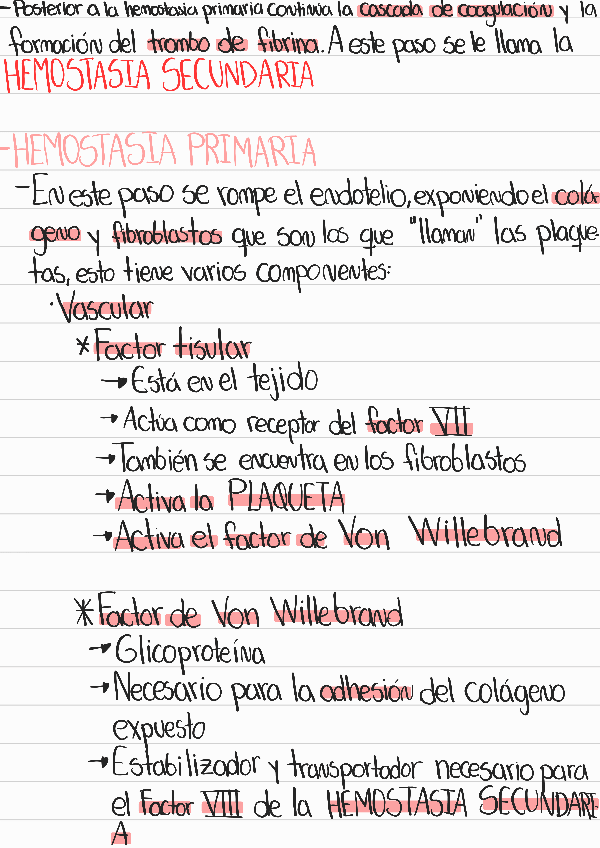 -Posterior a la hemostasia primaria continua la cascada de coagulación y la
formación del trombo de fibrina. A este paso se le llama la
HEMOSTASIA SECUNDARIA
-HEMOSTASIA PRIMARIA
-En este paso se rompe el endotelio, exponiendo el colá-
geno y fibroblastos que son los que "llaman" las plaque-
tas, esto tiene varios componentes:
·Vascular
*Factor tisular
→Está en el tejido
→Actúa como receptor del factor VII
→También se encuentra en los fibroblastos
→Activa la PLAQUETA
→Activa el factor de Von Willebrand
*Factor de Von Willebrand
→Glicoproteína
→Necesario para la adhesión del colágeno
expuesto
→Estabilizador y transportador necesario para
el Factor VIII de la HEMOSTASIA SECUNDARI-
A